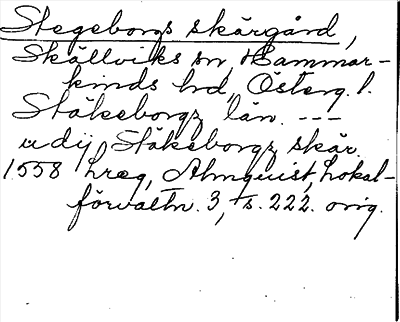 Stegeborgs skärgård,
Skällviks sn, Hammar-
kinds hd, Österg. l.
Stäkeborgz län. ---
udij Stäkeborgz skär
1558 hreg, Almquist, Lokal-
förvaltn. 3, s. 222. orig.